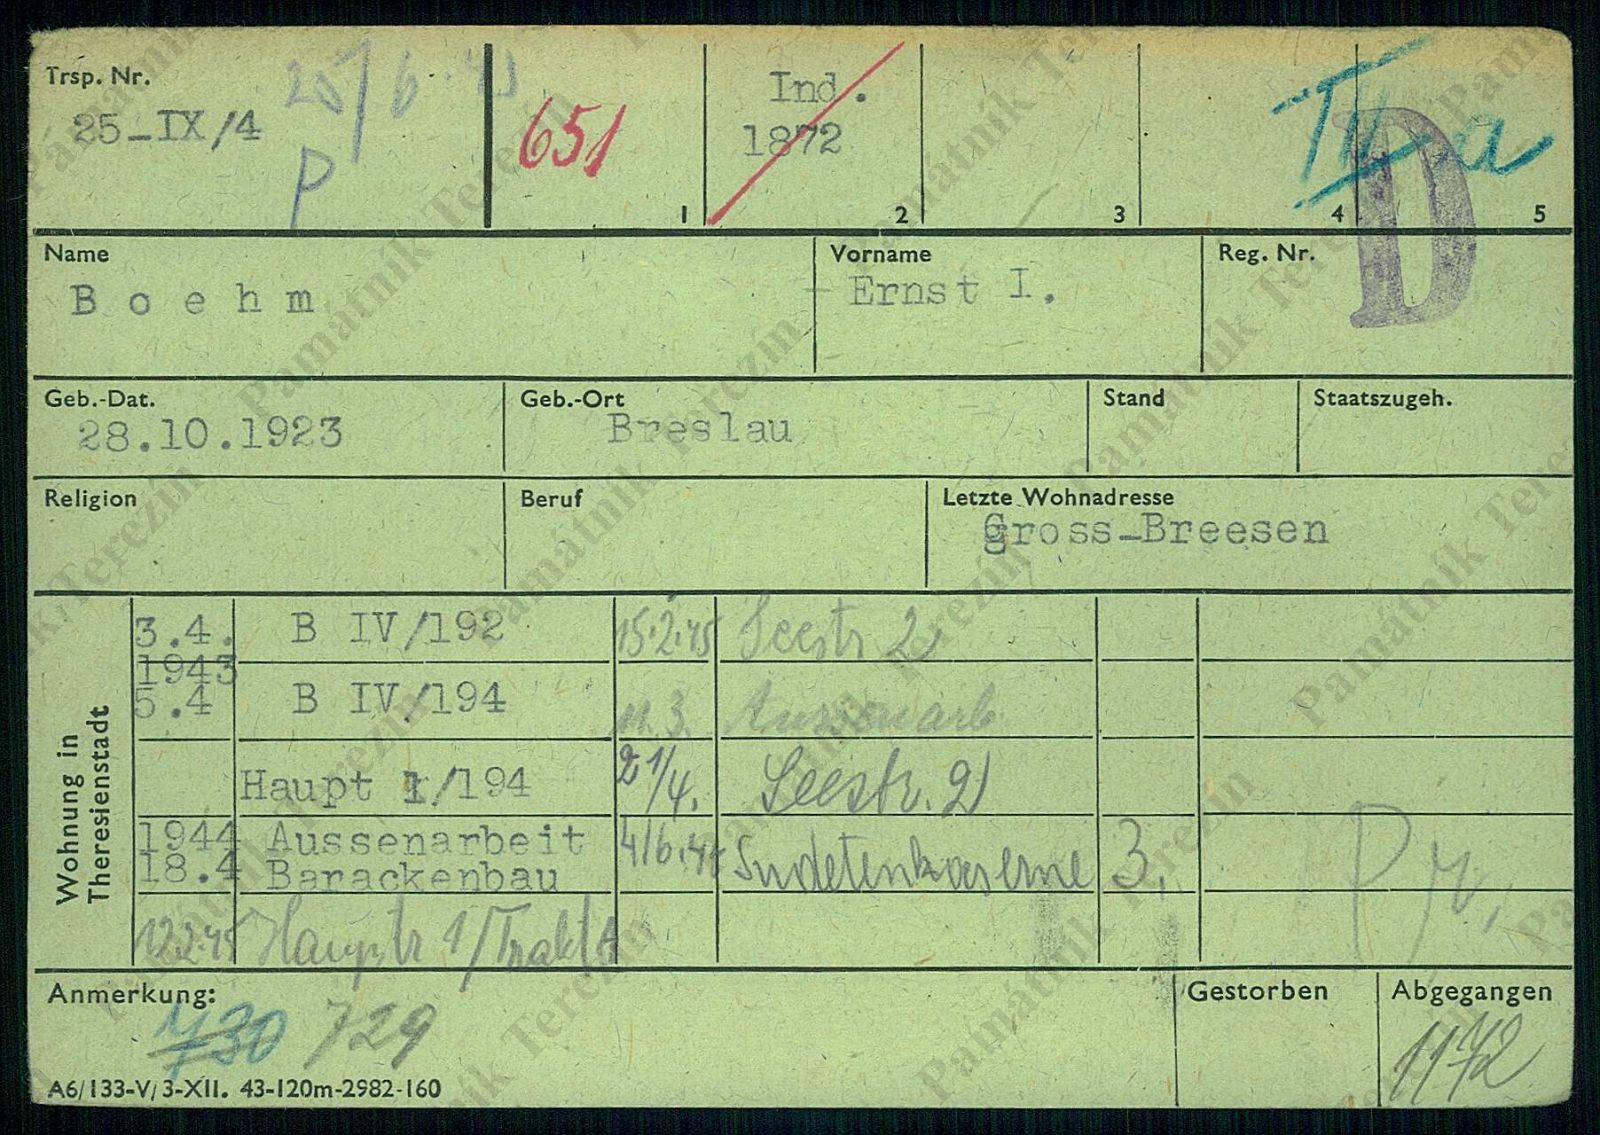 Trsp. Nr.
25-IX/4
25/6.45
P
651
1
Ind.
1872
2
3
4
5
D
Name
Boehm
Vorname
Ernst I.
Reg. Nr.
Geb.-Dat.
28.10.1923
Geb.-Ort
Breslau
Stand
Staatszugeh.
Religion
Beruf
Letzte Wohnadresse
Gross-Breesen
Wohnung in
Theresienstadt
3.4.
1943
B IV/192
15.2.45 Seestr 2
5.4
B IV/194
11.3. Aussenarb
Haupt 1/194
21/4. Seestr. 2
1944
18.4
Aussenarbeit
Barackenbau
4/6.45 Sudetenkaserne 3.
12.2.45 Hauptstr 1/Trakt
Anmerkung:
730 729
Gestorben
Abgegangen
1172
A6/133-V/3-XII. 43-120m-2982-160
Památník Terezín